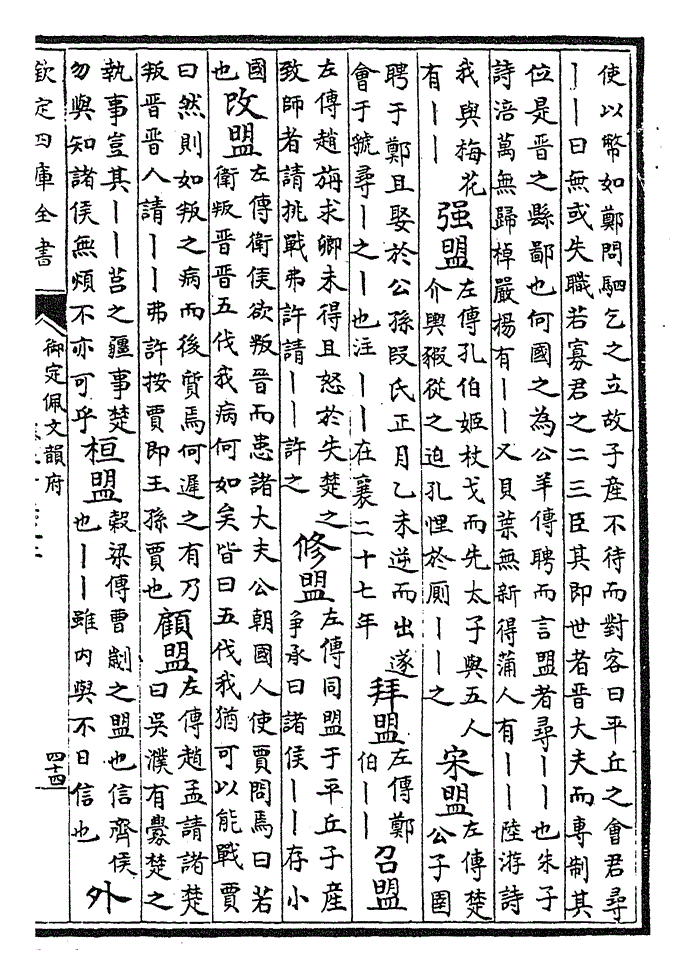 使以幣如鄭問駟乞之立故子産不待而對客曰平丘之會君尋
丨丨曰無或失職若寡君之二三臣其即世者晉大夫而專制其
位是晉之縣鄙也何國之為公羊傳聘而言盟者尋丨丨也朱子
詩涪萬無歸棹嚴揚有丨丨又貝葉無新得蒲人有丨丨陸游詩
我與梅花
有丨丨
强盟
左傳孔伯姬杖戈而先太子與五人
介輿豭從之迫孔悝於厠丨丨之
宋盟
左傳楚
公子圍
聘于鄭且娶於公孫段氏正月乙未逆而出遂
會于虢尋丨之丨也注丨丨在襄二十七年
拜盟
左傳鄭
伯丨丨
召盟
左傳趙旃求卿未得且怒於失楚之
致師者請挑戰弗許請丨丨許之
修盟
左傳同盟于平丘子産
爭承曰諸侯丨丨存小
國
也
改盟
左傳衛侯欲叛晉而患諸大夫公朝國人使賈問焉曰若
衛叛晉晉五伐我病何如矣皆曰五伐我猶可以能戰賈
曰然則如叛之病而後質焉何遲之有乃
叛晉晉人請丨丨弗許按賈即王孫賈也
顧盟
左傳趙孟請諸楚
曰吳濮有釁楚之
執事豈其丨丨莒之疆事楚
勿與知諸侯無煩不亦可乎
桓盟
穀梁傳曹劌之盟也信齊侯
也丨丨雖内與不日信也
外
欽定四庫全書
御定佩文韻府
四十四